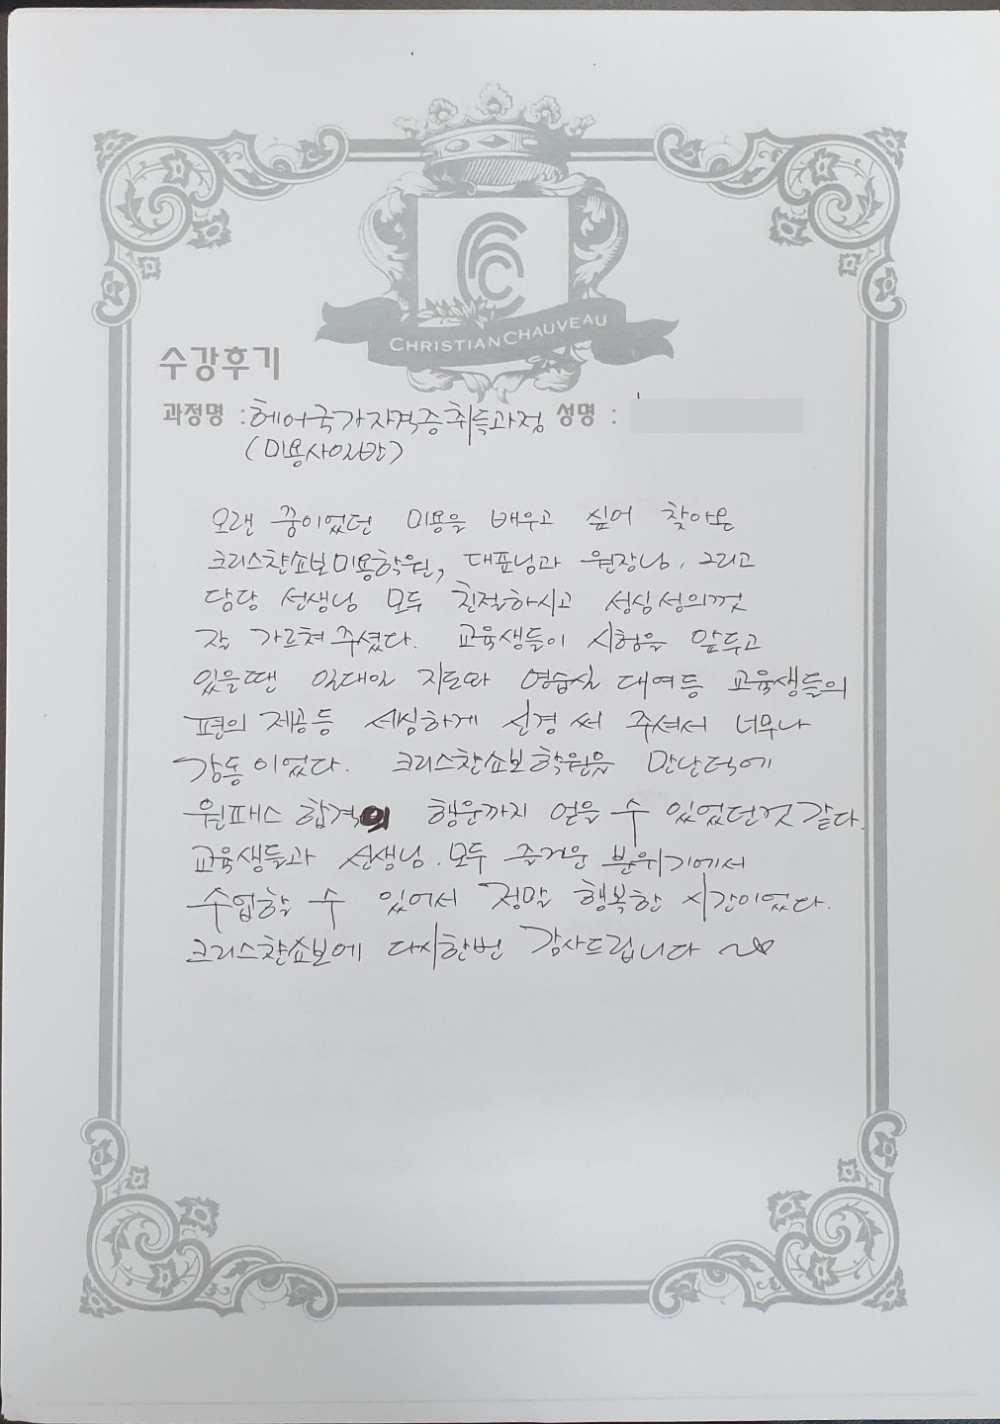 CHRISTIAN CHAUVEAU
수강후기
과정명 : 헤어국가자격증취득과정 성명 :
(미용사일반)
오랜 꿈이었던 미용을 배우고 싶어 찾아온
크리스챤쇼보미용학원, 대표님과 원장님, 그리고
담당 선생님 모두 친절하시고 성심성의껏
잘 가르쳐 주셨다. 교육생들이 시험을 앞두고
있을땐 일대일 지도와 연습실 대여등 교육생들의
편의 제공등 세심하게 신경 써 주셔서 너무나
감동이었다. 크리스챤쇼보학원을 만난덕에
원패스 합격의 행운까지 얻을 수 있었던것 같다.
교육생들과 선생님 모두 즐거운 분위기에서
수업할 수 있어서 정말 행복한 시간이었다.
크리스챤쇼보에 다시한번 감사드립니다 ~♡